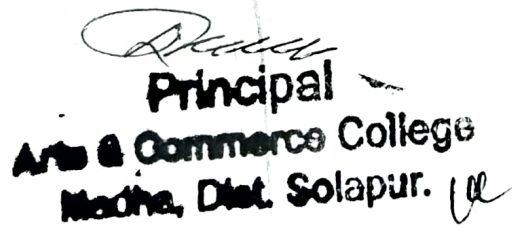 Principal
Arts & Commerce College
Madha, Dist. Solapur.